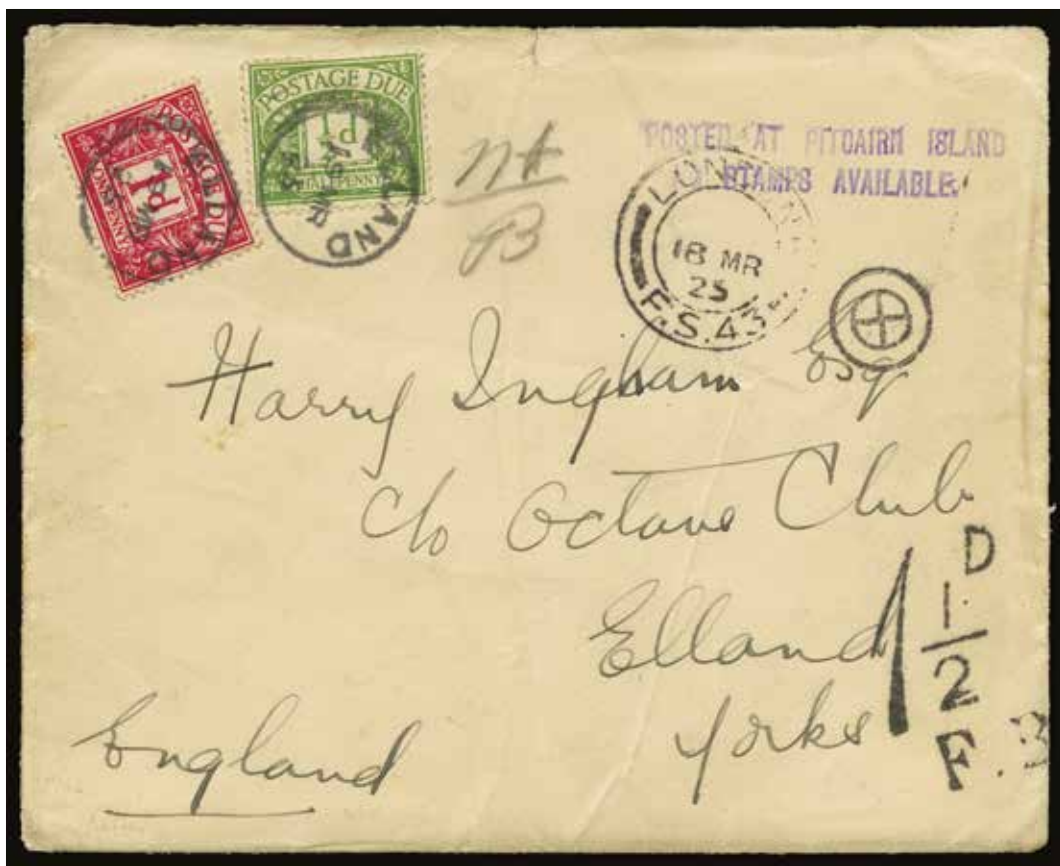 POSTAGE DUE
1d
ONE PENNY
POSTAGE DUE
½d
HALFPENNY
ELLAND
POSTED AT PITCAIRN ISLAND
STAMPS AVAILABLE.
LONDON
18 MR
25
F.S. 43
Harry Ingham Esq
c/o Octave Club
Elland
Yorks
England
1 D
1/2
F.B